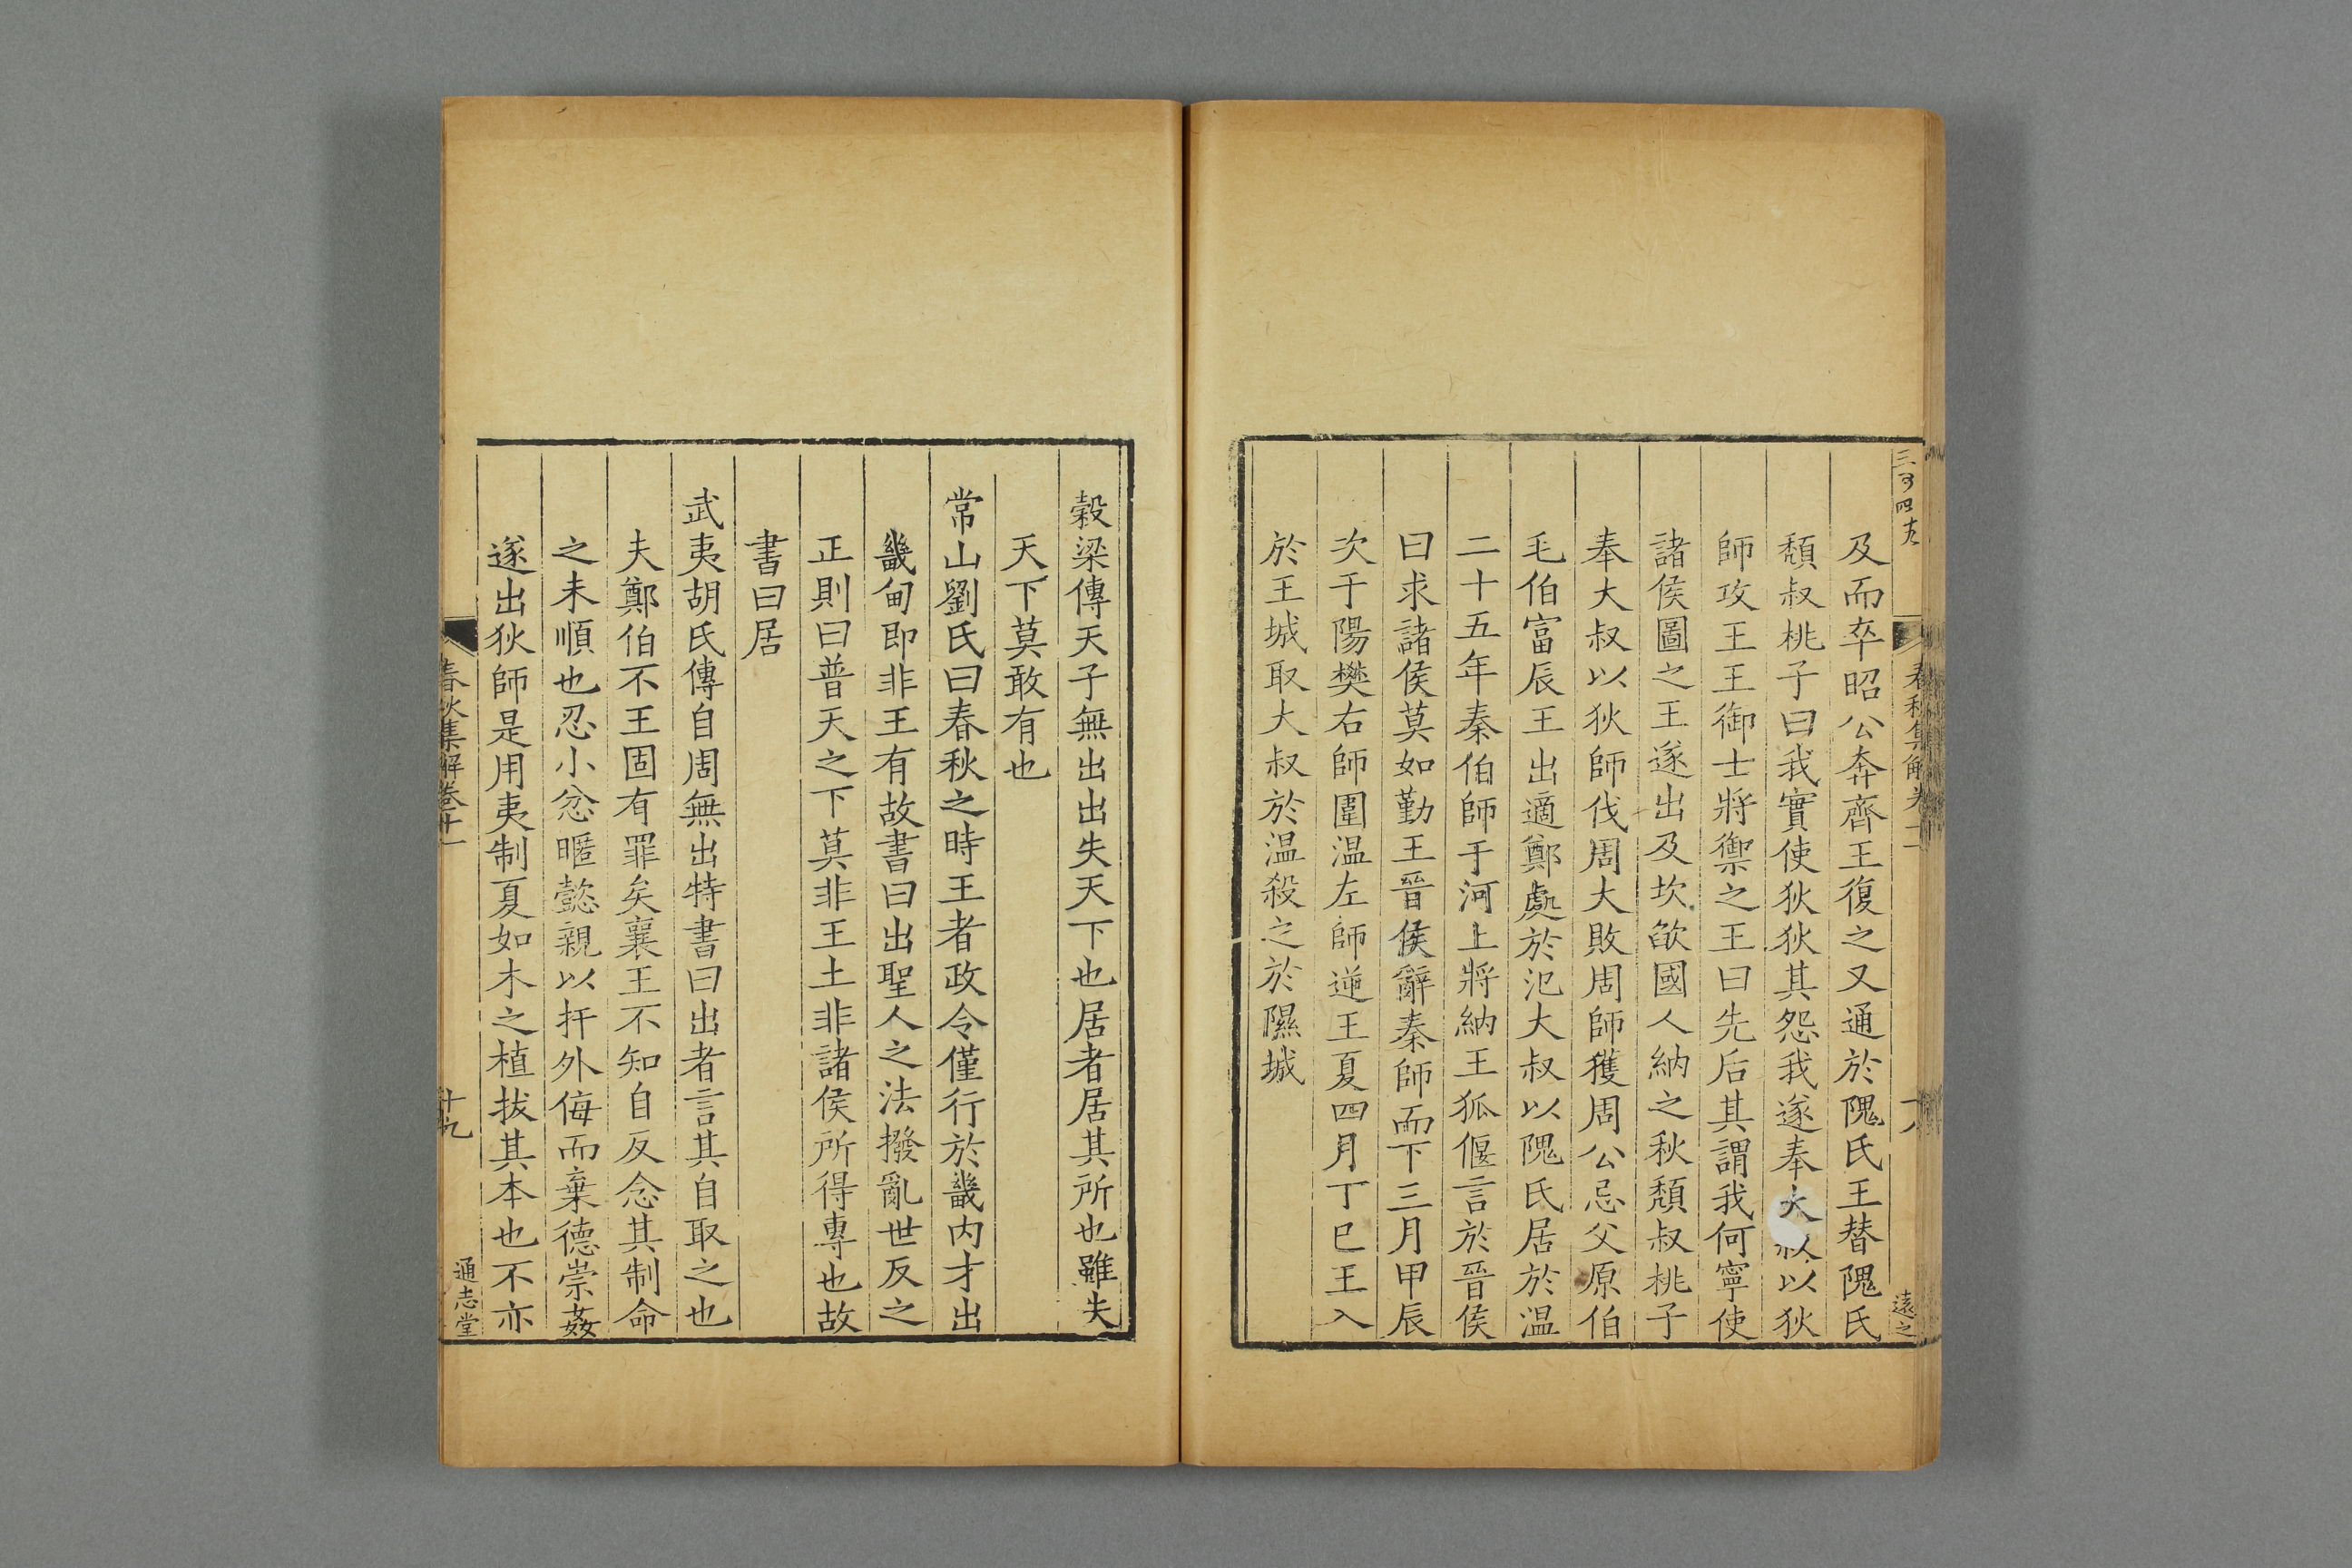 及而卒昭公奔齊王復之又通於隗氏王替隗氏
頹叔桃子曰我實使狄狄其怨我遂奉大叔以狄
師攻王王御士將禦之王曰先后其謂我何寧使
諸侯圖之王遂出及坎欿國人納之秋頹叔桃子
奉大叔以狄師伐周大敗周師獲周公忌父原伯
毛伯富辰王出適鄭處於氾大叔以隗氏居於温
二十五年秦伯師于河上將納王狐偃言於晉侯
曰求諸侯莫如勤王晉侯辭秦師而下三月甲辰
次于陽樊右師圍温左師逆王夏四月丁巳王入
於王城取大叔於温殺之於隰城
榖梁傳天子無出出失天下也居者居其所也雖失
天下莫敢有也
常山劉氏曰春秋之時王者政令僅行於畿内才出
畿甸即非王有故書曰出聖人之法撥亂世反之
正則曰普天之下莫非王土非諸侯所得專也故
書曰居
武夷胡氏傳自周無出特書曰出者言其自取之也
夫鄭伯不王固有罪矣襄王不知自反念其制命
之未順也忍小忿暱懿親以扞外侮而棄德崇姦
遂出狄師是用夷制夏如木之植拔其本也不亦
春秋集解卷十一
十九
通志堂